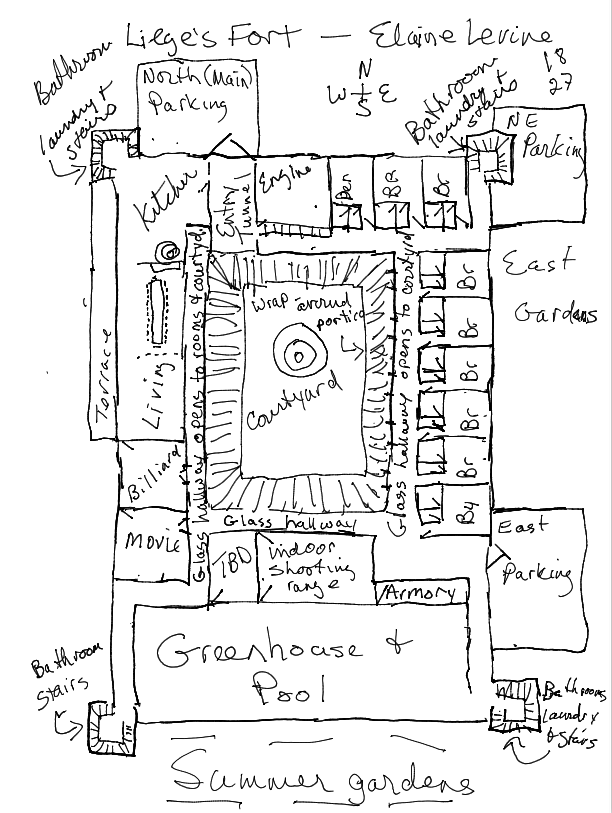 Liege's Fort — Elaine Levine
18
27
Bathroom
laundry +
stairs
North (Main)
Parking
N
W E
S
Bathroom
laundry +
stairs
NE
Parking
Kitchen
Entry
Tunnel
Engine
Den
BR
Br
East
Gardens
Terrace
Living
Glass hallway opens to rooms & courtyd
Wrap around
portico
Courtyard
Glass hallway opens to courtyrd
Br
Br
Br
Br
Br
Br
Billiard
Movie
Glass hallway
TBD
Indoor
shooting
range
Armory
East
Parking
Greenhouse &
Pool
Bathroom
stairs
Bathrooms
laundry
& stairs
Summer gardens